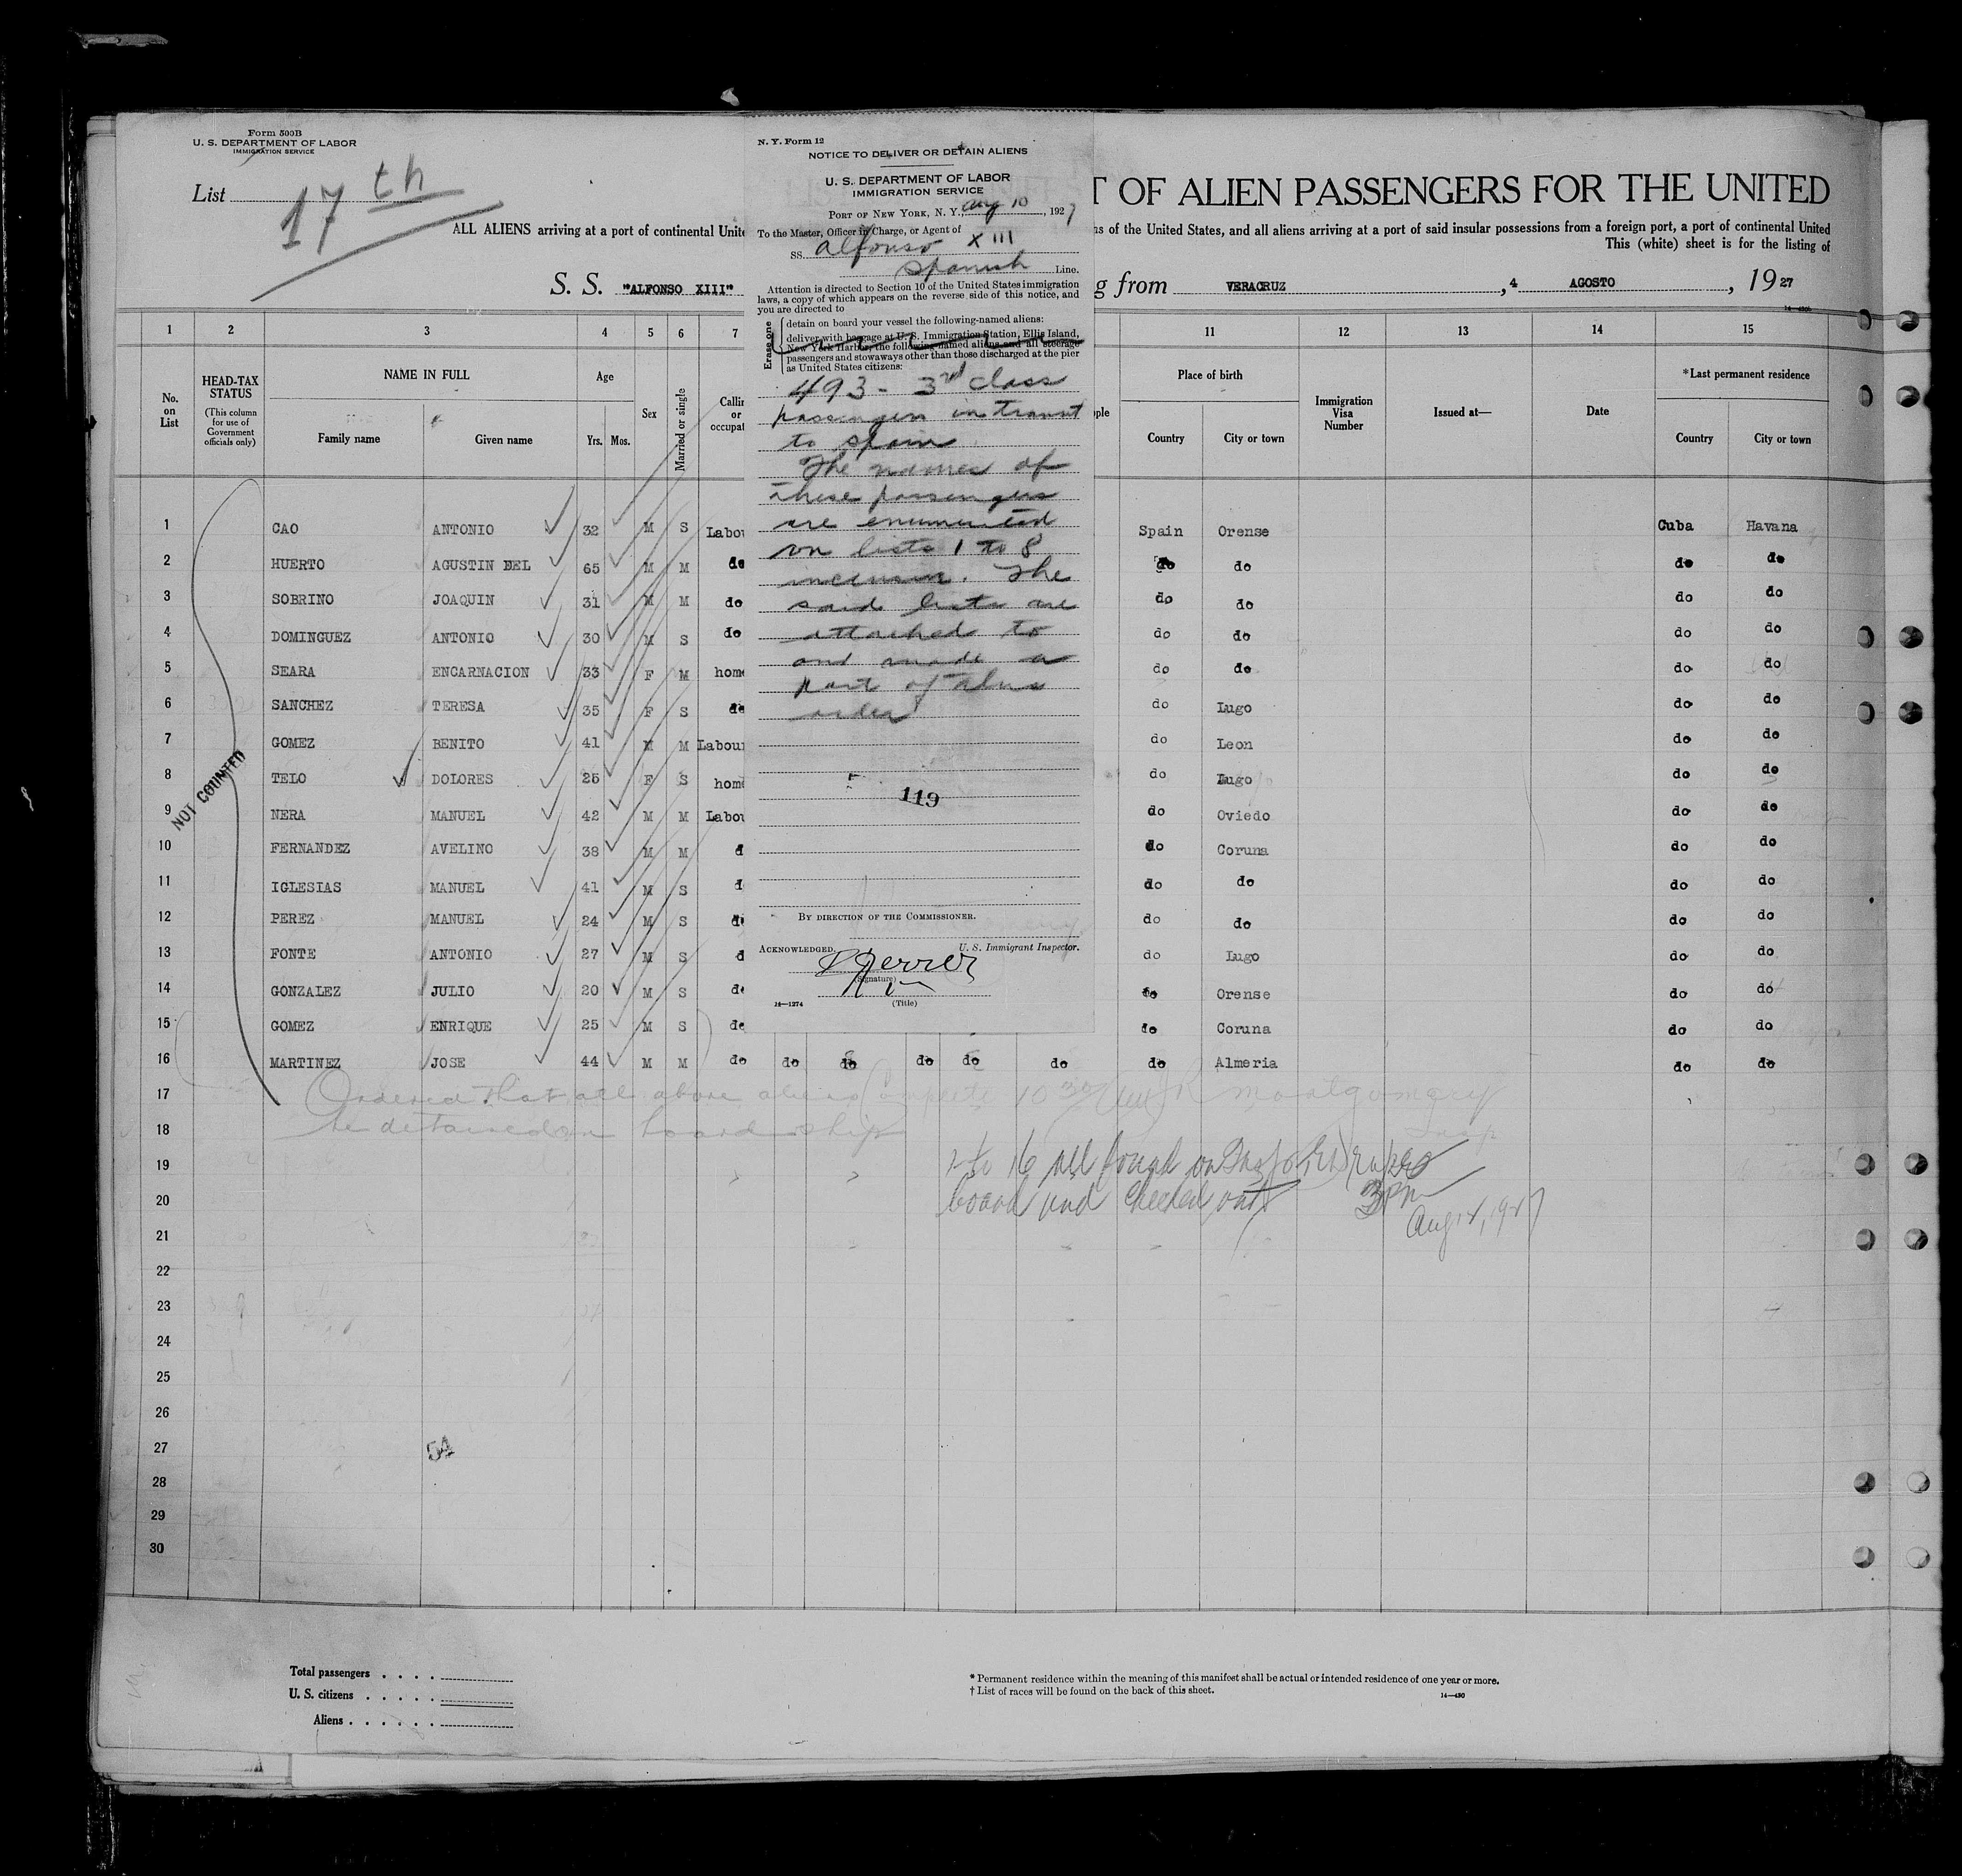 Form 500B
U. S. DEPARTMENT OF LABOR
IMMIGRATION SERVICE
List 17th
T OF ALIEN PASSENGERS FOR THE UNITED
ALL ALIENS arriving at a port of continental Unite
s of the United States, and all aliens arriving at a port of said insular possessions from a foreign port, a port of continental United
This (white) sheet is for the listing of
S. S. "ALFONSO XIII"
g from VERACRUZ , 4 AGOSTO , 19 27
N. Y. Form 12
NOTICE TO DELIVER OR DETAIN ALIENS
U. S. DEPARTMENT OF LABOR
IMMIGRATION SERVICE
PORT OF NEW YORK, N. Y., Aug 10, 1927
To the Master, Officer in Charge, or Agent of
SS. Alfonso XIII
Spanish Line.
Attention is directed to Section 10 of the United States immigration
laws, a copy of which appears on the reverse side of this notice, and
you are directed to
Erase one
detain on board your vessel the following-named aliens:
deliver with baggage at U. S. Immigration Station, Ellis Island,
New York Harbor, the following-named aliens and all steerage
passengers and stowaways other than those discharged at the pier
as United States citizens:
493 - 3rd class
passengers in transit
to Spain
The names of
these passengers
are enumerated
on lists 1 to 8
inclusive. The
said lists are
attached to
and made a
part of this
order
119
BY DIRECTION OF THE COMMISSIONER.
ACKNOWLEDGED.
U. S. Immigrant Inspector.
(Signature)
(Title)
14—1274
1 2 3 4 5 6 7 11 12 13 14 15
No. on List
HEAD-TAX STATUS
(This column for use of Government officials only)
NAME IN FULL
Family name Given name
Age
Yrs. Mos.
Sex
Married or single
Callin
or
occupat
ple
Place of birth
Country City or town
Immigration Visa Number
Issued at—
Date
*Last permanent residence
Country City or town
NOT COUNTED
1 CAO ANTONIO 32 M S Labou Spain Orense Cuba Havana
2 HUERTO AGUSTIN DEL 65 M M do do do do do
3 SOBRINO JOAQUIN 31 M M do do do do do
4 DOMINGUEZ ANTONIO 30 M S do do do do do
5 SEARA ENCARNACION 33 F M home do do do do
6 SANCHEZ TERESA 35 F S do do Lugo do do
7 GOMEZ BENITO 41 M M Labour do Leon do do
8 TELO DOLORES 25 F S home do Lugo do do
9 NERA MANUEL 42 M M Labou do Oviedo do do
10 FERNANDEZ AVELINO 38 M M d do Coruna do do
11 IGLESIAS MANUEL 41 M S d do do do do
12 PEREZ MANUEL 24 M S do do do do do
13 FONTE ANTONIO 27 M S d do Lugo do do
14 GONZALEZ JULIO 20 M S do do Orense do do
15 GOMEZ ENRIQUE 25 M S do do Coruna do do
16 MARTINEZ JOSE 44 M M do do do do do do do Almeria do do
17 Ordered that all above aliens Montgomery
18 be detained on board ship Insp
19 1 to 16 all found on
20 board and checked out 3 PM
21 Aug
22
23
24
25
26
27 54
28
29
30
Total passengers . . . .
U. S. citizens . . . . .
Aliens . . . . . .
* Permanent residence within the meaning of this manifest shall be actual or intended residence of one year or more.
† List of races will be found on the back of this sheet.
14—430